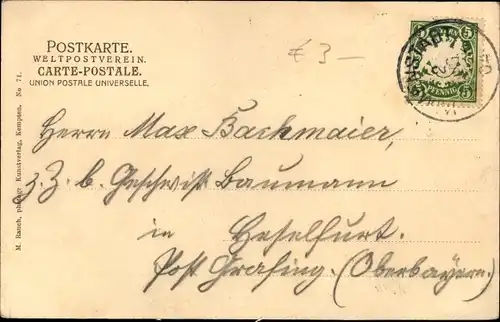 POSTKARTE.
WELTPOSTVEREIN.
CARTE-POSTALE.
UNION POSTALE UNIVERSELLE.
€ 3 —
5 5
PFENNIG
Herrn Max Bachmaier,
z. Z. b. Geschwist Baumann
in
Post Grafing. (Oberbayern.)
M. Ranch, Kunstverlag, Kempten. No 71.